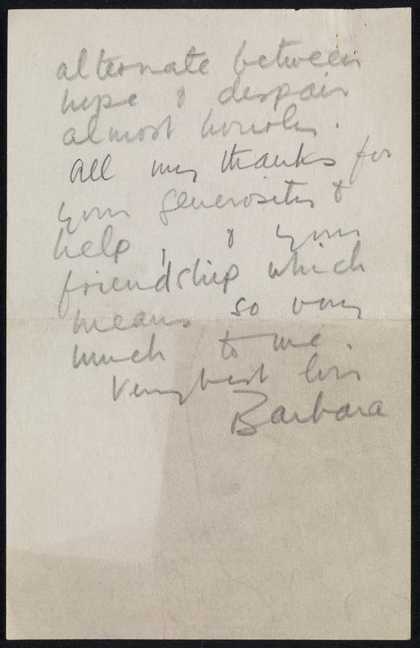 alternate between
hope & despair
almost hourly.
All my thanks for
your generosity &
help, & your
friendship which
means so very
much to me.
Very best love
Barbara